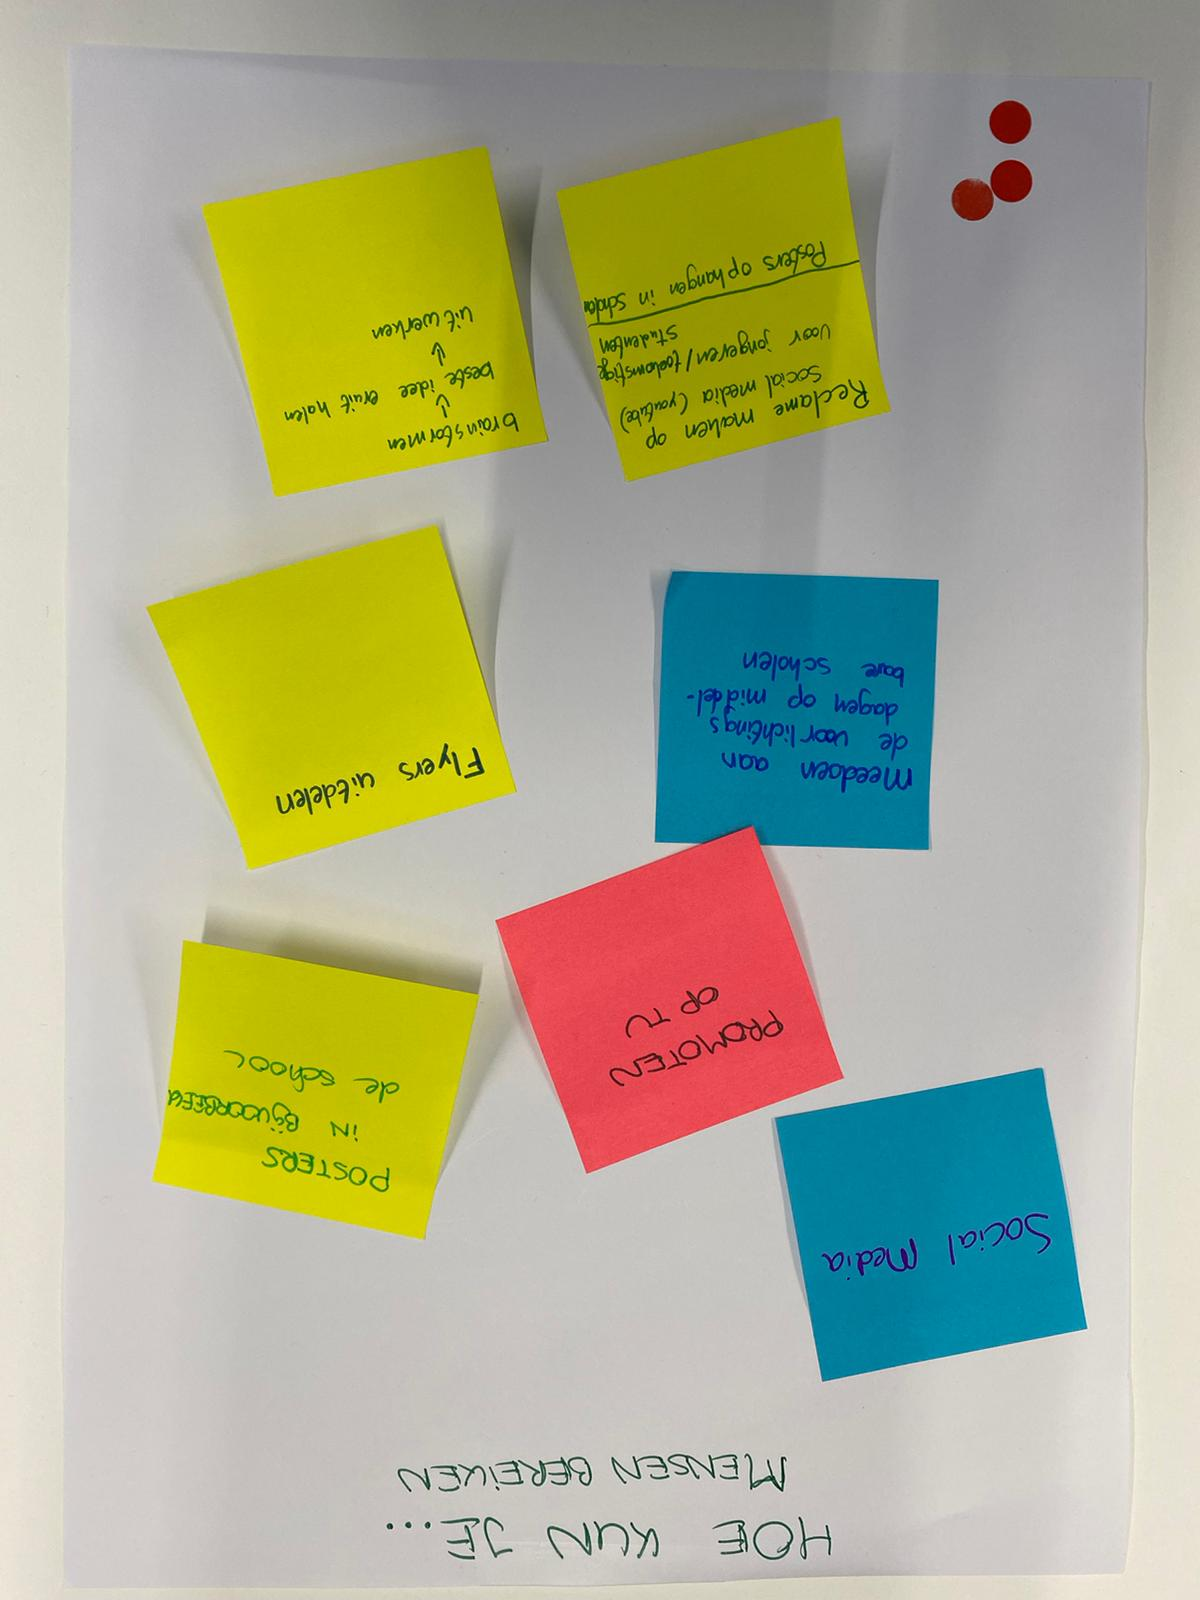 HOE KUN JE...
MENSEN BEREIKEN
Social Media
PROMOTEN
OP TV
POSTERS
iN BijVOORBEELD
de school
meedoen aan
de voorlichtings
dagen op middel-
bare scholen
Flyers uitdelen
Reclame maken op
social media (youtube)
voor jongeren/toekomstige
studenten
Posters ophangen in scholen
brainstormen
↓
beste idee eruit halen
↓
uitwerken